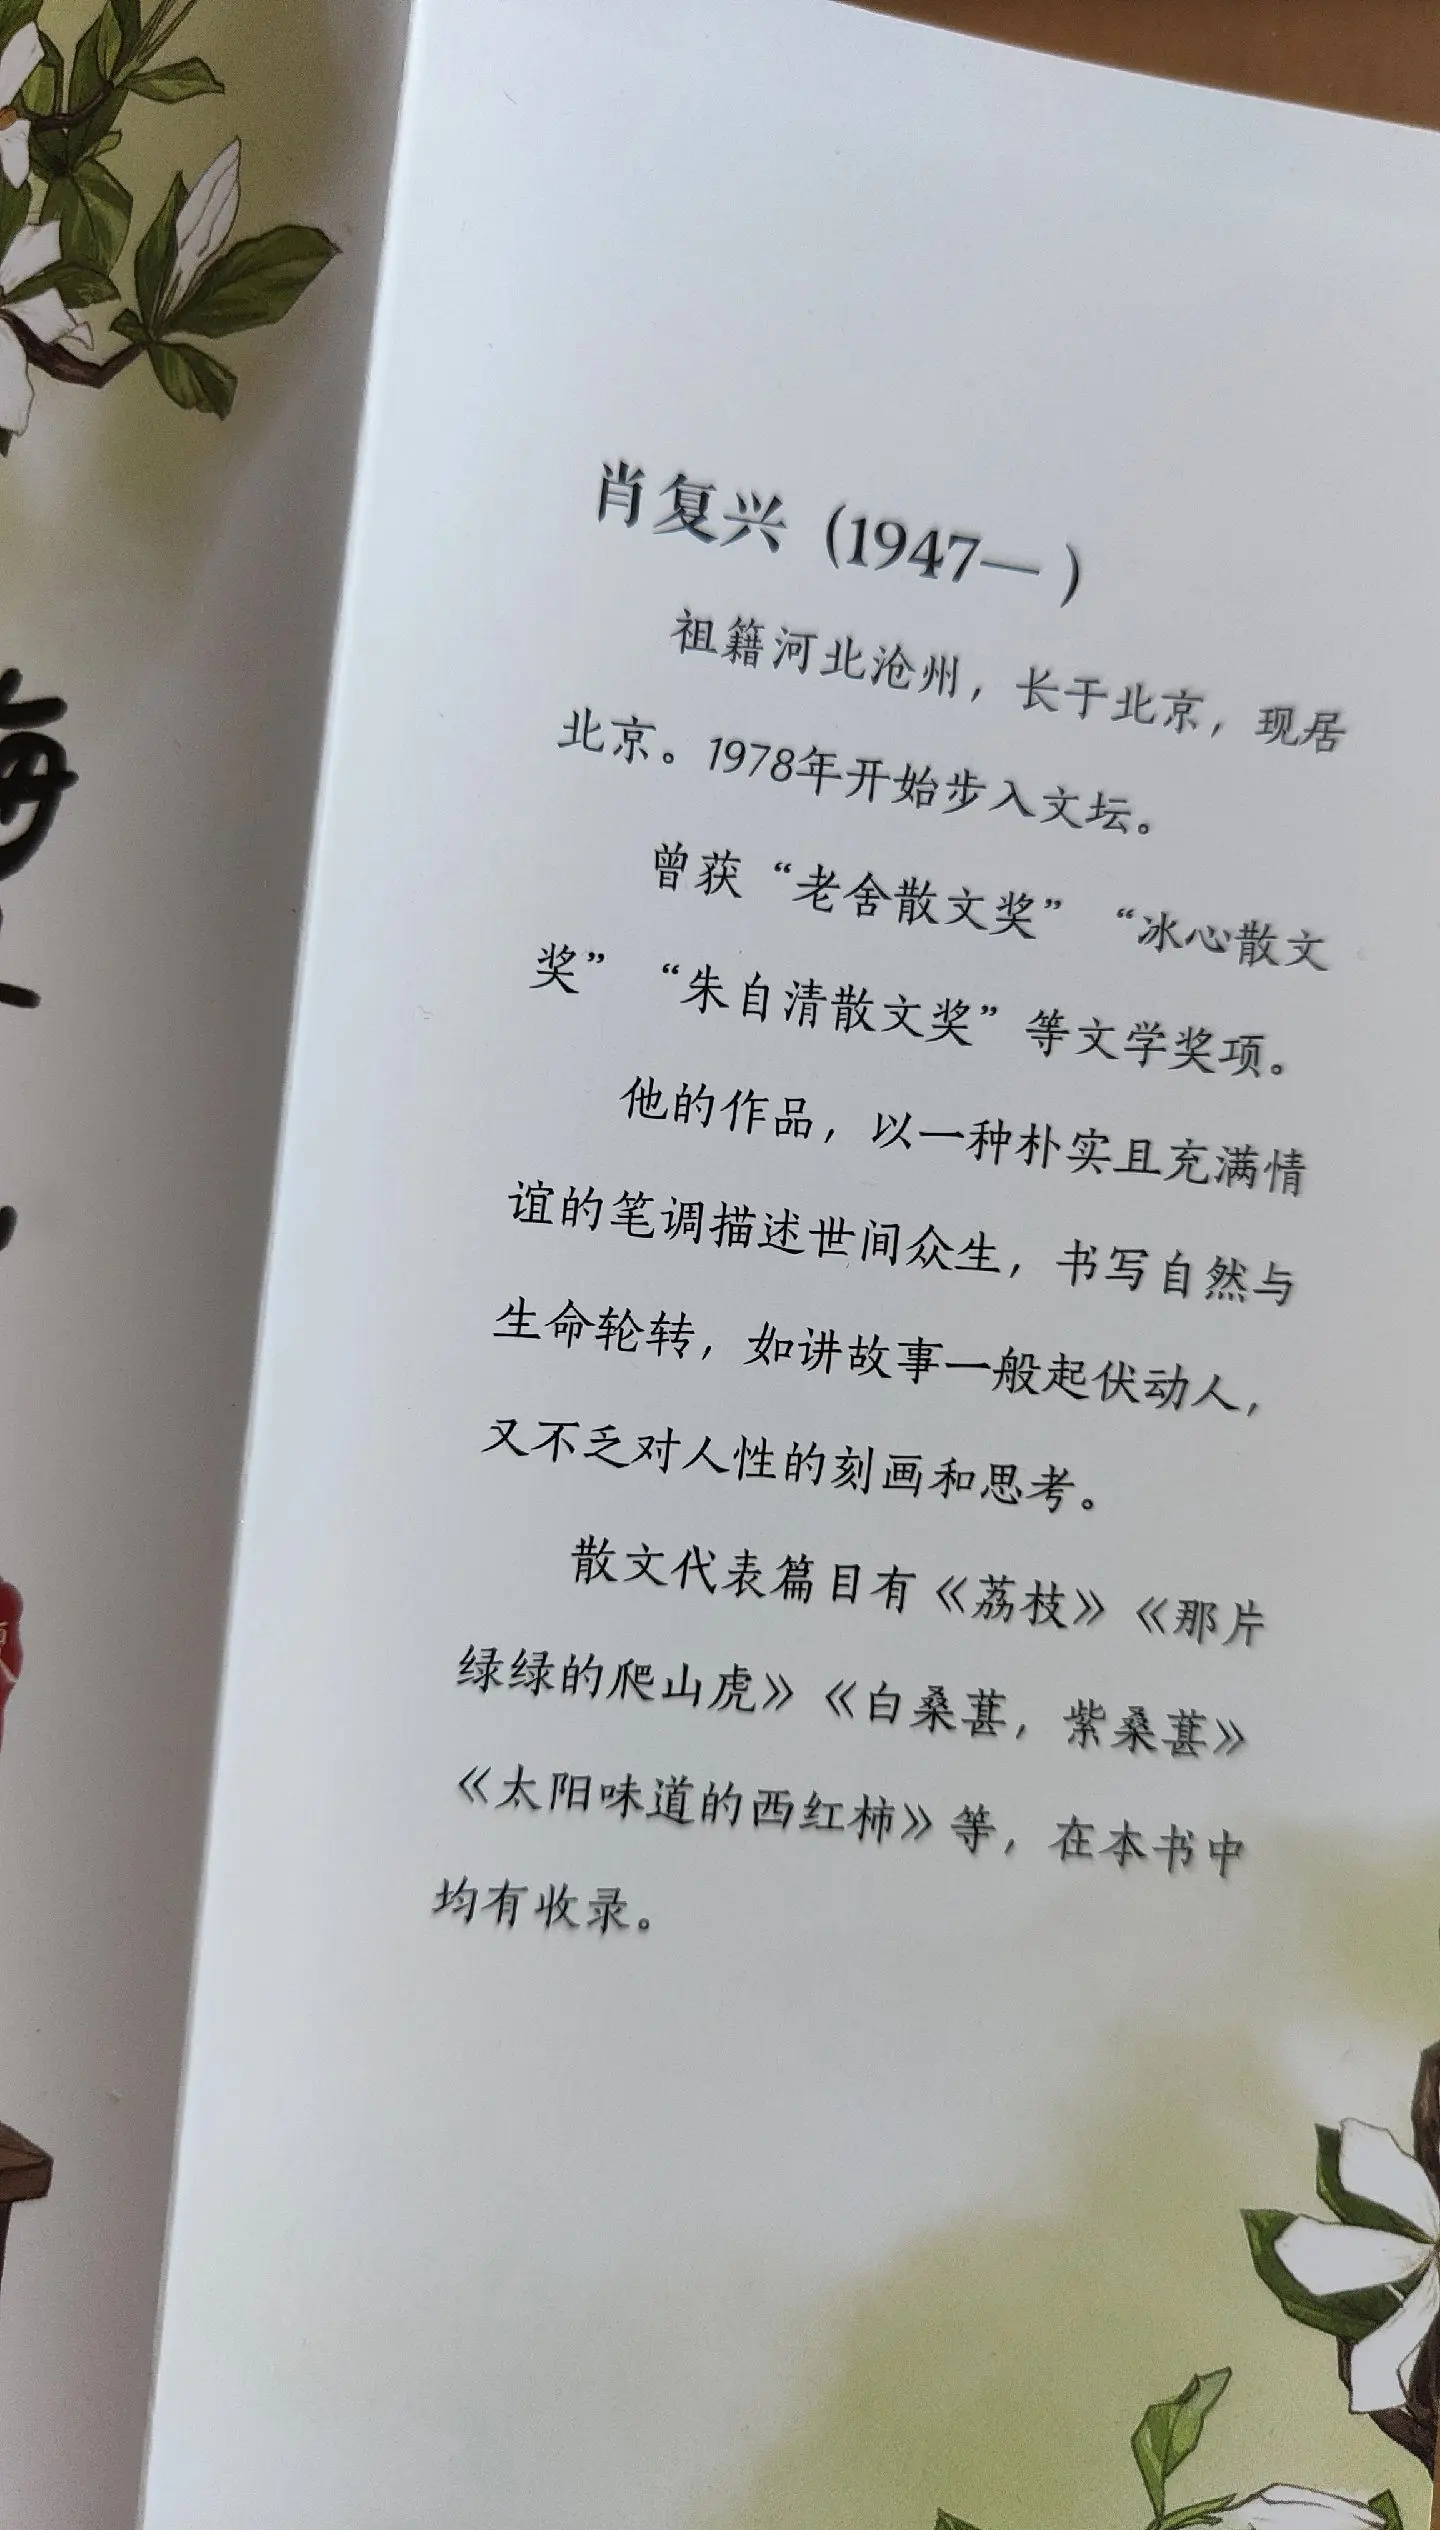 肖复兴（1947— ）
祖籍河北沧州，长于北京，现居
北京。1978年开始步入文坛。
曾获“老舍散文奖”“冰心散文
奖”“朱自清散文奖”等文学奖项。
他的作品，以一种朴实且充满情
谊的笔调描述世间众生，书写自然与
生命轮转，如讲故事一般起伏动人，
又不乏对人性的刻画和思考。
散文代表篇目有《荔枝》《那片
绿绿的爬山虎》《白桑葚，紫桑葚》
《太阳味道的西红柿》等，在本书中
均有收录。